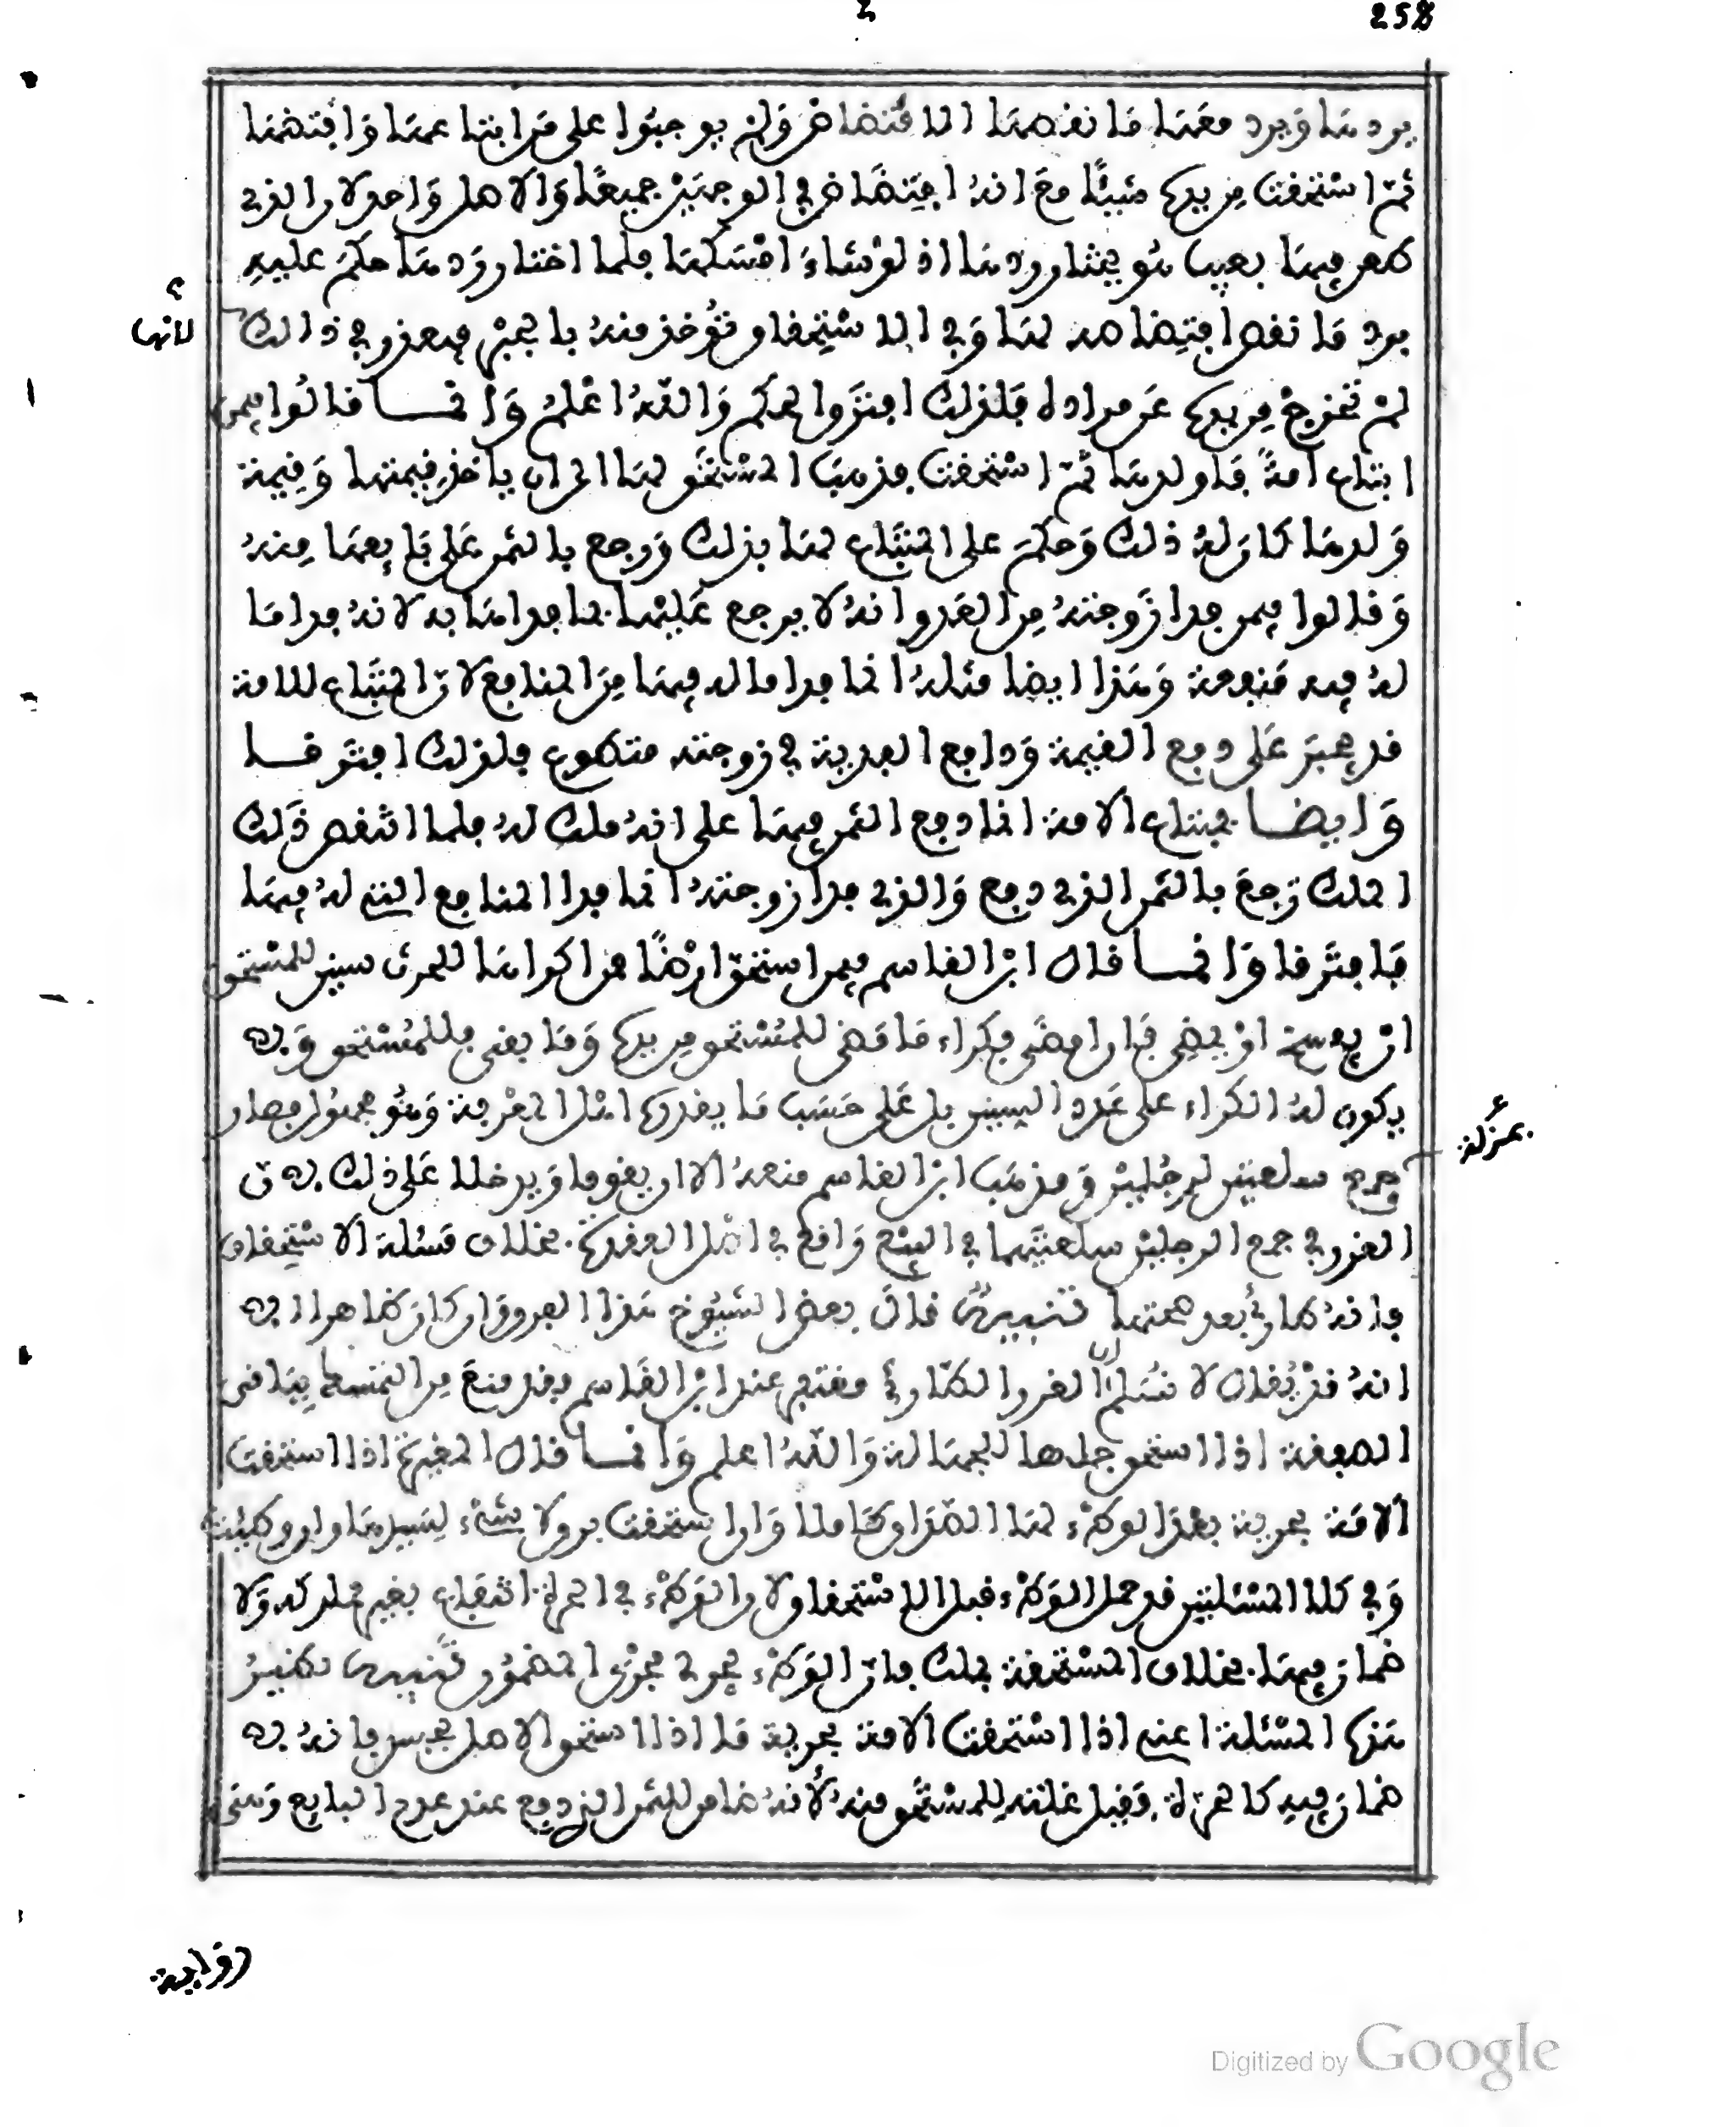 258
يردها ويرد معها ما نقصها الافتضاض ولم يوجبوا على من ابتاعها وافتضها
ثم استحقت من يده شيئا مع انه افتضاض في الوجهين جميعا والاصل واحد لان الذي
ظهر فيها بعيب هو يختار ردها اذ لو شاء امسكها فلما اختار ردها حكم عليه
برد ما نقص افتضاضه لها وفي الاستحقاق تؤخذ منه بالجبر فيعذر في ذالك
لانها
لم تخرج من يده عن مراده فلذلك افترق الحكم والله اعلم وانما قالوا فيمن
ابتاع امة فاولدها ثم استحقت فذهب المستحق لها الى ان ياخذ قيمتها وقيمة
ولدها كان له ذلك وحكم على المبتاع لها بذلك ورجع بالثمن على بايعها منه
وقالوا فيمن فدا زوجته من العدو انه لا يرجع عليها بما فداها به لانه فدا ما
له فيه منفعة وهذا ايضا مثله انما فدا ماله فيها من المنافع لان المبتاع للامة
قد يجبر على دفع القيمة ودافع الفدية في زوجته متطوع فلذلك افترقا
وايضا فمبتاع الامة انما دفع الثمن فيها على انه ملك له فلما انتقض ذلك
الملك رجع بالثمن الذي دفع والذي فدا زوجته انما فدا المنافع التي له فيها
فافترقا وانما قال ابن القاسم فيمن استحق ارضا ممن اكراها للحرث سنين للمستحق
ان يفسخ او يمضي فان امضى فكراء ما مضى للمستحق من يده وما بقي فللمستحق وبه
يكون له الكراء على عدد السنين بل على حسب ما يقدره اهل المعرفة وهو مجهول فصار
بمنزلة
جمع سلعتين لرجلين ومذهب ابن القاسم منعه الا ان يقوما ويدخلا على ذلك به ن
الغرر في جمع الرجلين سلعتيهما في البيع واقع في اصل العقدة بخلاف مسئلة الاستحقاق
فانه طارئ بعد صحتها تنبيه قال بعض الشيوخ هذا الفرق وان كان ظاهرا الا به
انه قد يقال لا نسلم ان الغرر الطارئ مغتفر عند ابن القاسم فقد منع من التمسك بباقي
الصفقة اذا استحق جلها للجهالة والله اعلم وانما قال المغيرة اذا استحقت
الامة بحرية بعد الوطء لها الصداق كاملا وان استحقت برق لا شيء لسيدها وان وطئت
وفي كلا المسئلتين قد حصل الوطء قبل الاستحقاق لان الوطء في الحرة انتفاع بغير ملكه ولا
ضمان فيها بخلاف المستحقة بملك فان الوطء يجري مجرى المضمون تنبيه نظير
هذه المسئلة اعني اذا استحقت الامة بحرية ما اذا استحق الاصل بحبس فانه به
ضمان فيه كالحرة وقيل غلته للمستحق منه لانه ضامن للثمن الذي دفع عند عدم البايع وهي
رواية